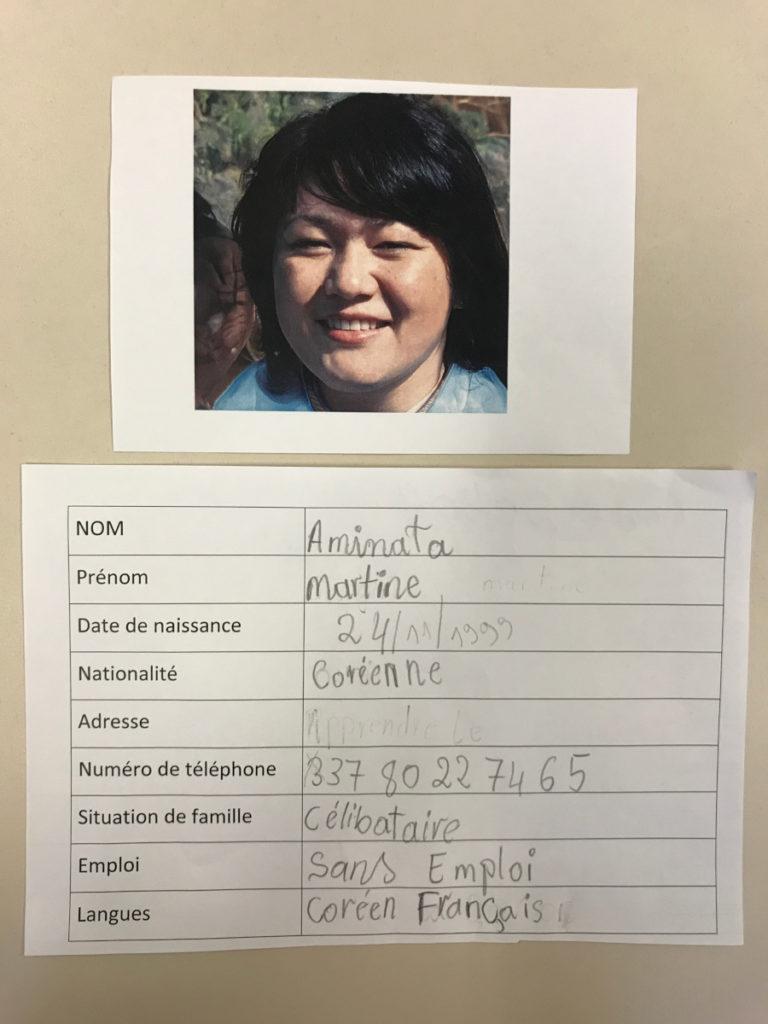 NOM Aminata
Prénom martine martine
Date de naissance 24/11/1999
Nationalité Coréenne
Adresse Apprendre Le
Numéro de téléphone 337 80 22 74 65
Situation de famille Célibataire
Emploi Sans Emploi
Langues Coréen Français